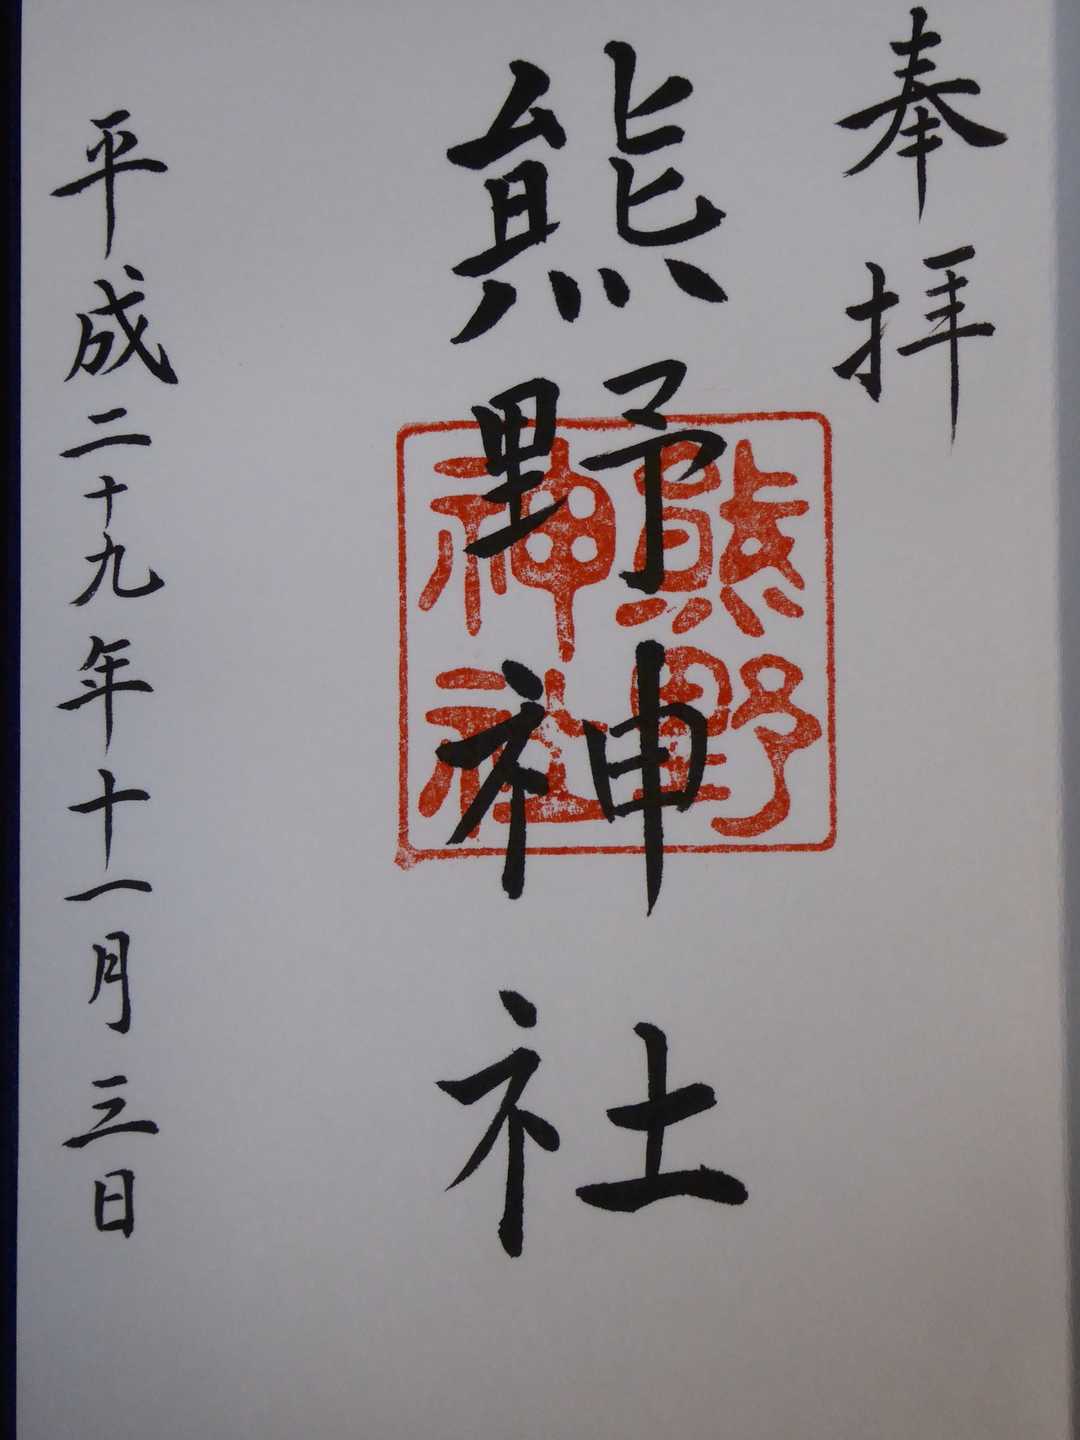 奉拝
熊野神社
熊野
神社
平成二十九年十一月三日